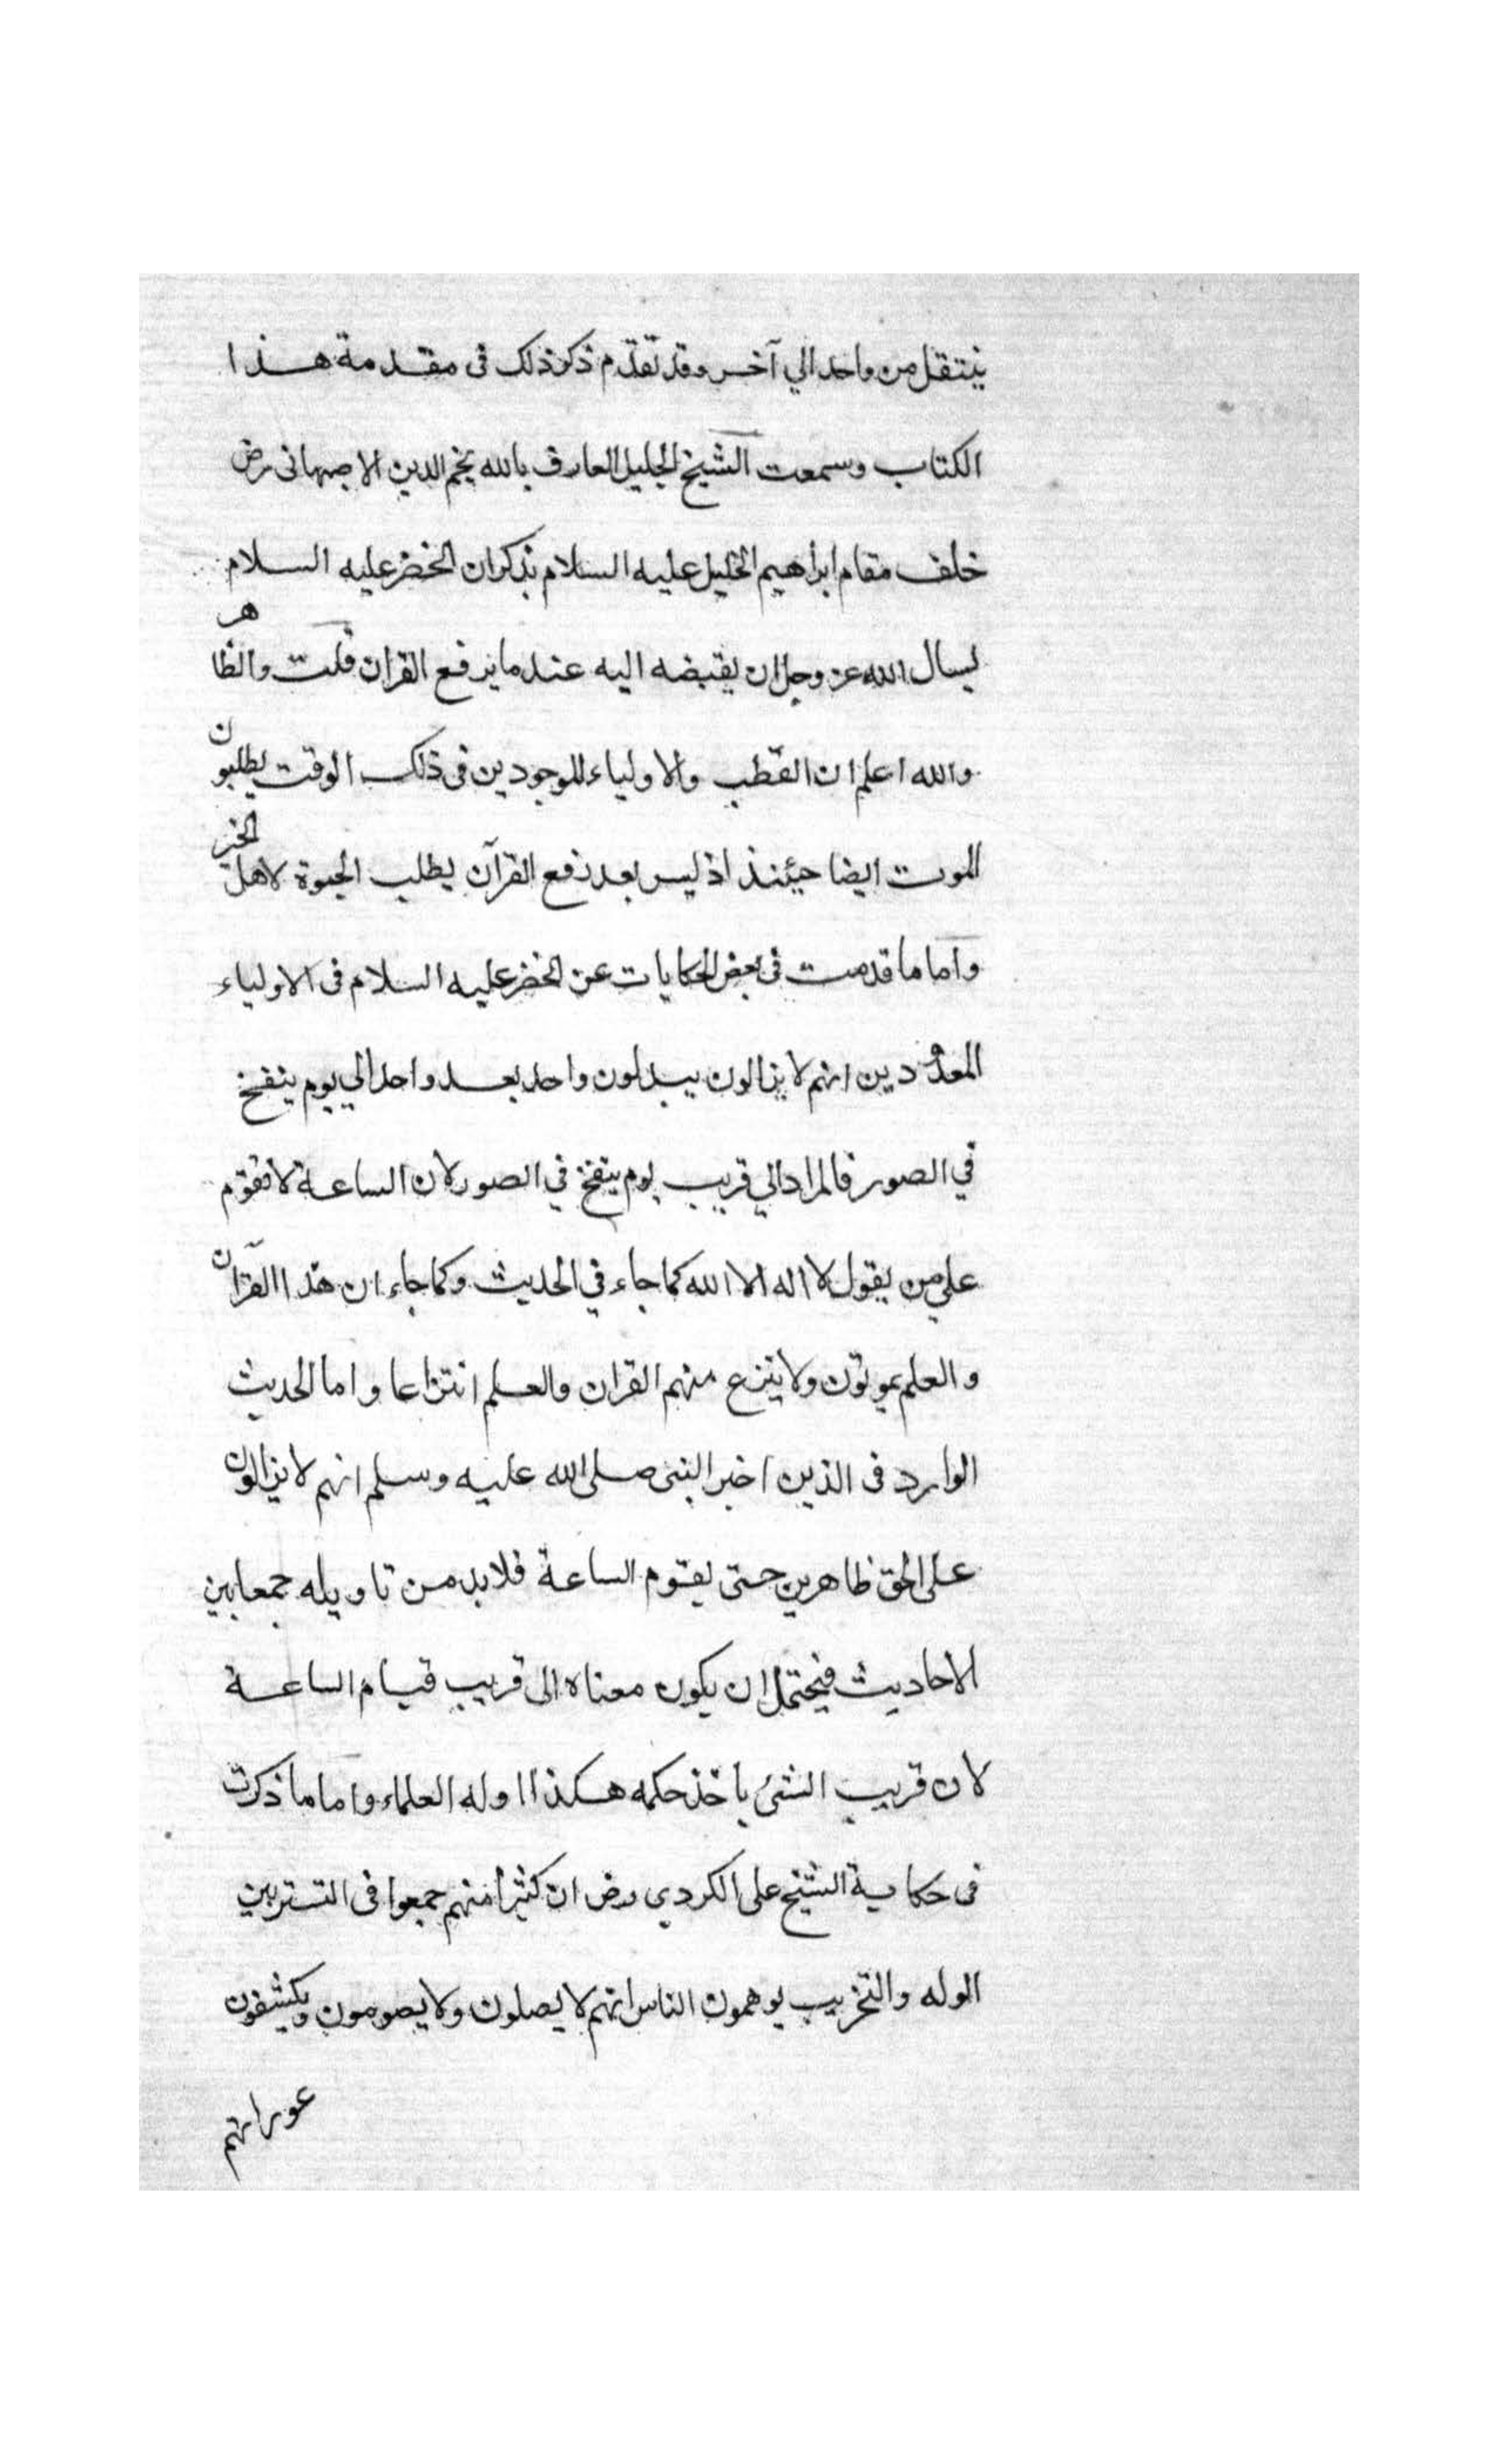 ينتقل من واحد الي آخر وقد تقدّم ذكر ذلك فى مقدمة هذا
الكتاب وسمعت الشيخ الجليل العارف بالله نجم الدين الاصبهانى رض
خلف مقام ابراهيم الخليل عليه السلام يذكر ان الخضر عليه السلام
يسال الله عز وجل ان يقبضه اليه عند ما يرفع القران قلت والظاهر
والله اعلم ان القطب والاولياء الموجودين فى ذلك الوقت يطلبون
الموت ايضا حيئنذ اذ ليس بعد رفع القرآن يطلب الحيوة لاهل الخير
واما ما قدمت فى بعض الحكايات عن الخضر عليه السلام فى الاولياء
المعدودين انهم لا يزالون يبدلون واحد بعد واحد الي يوم ينفخ
في الصور فالمراد الي قريب يوم ينفخ في الصور لان الساعة لا تقوم
علي من يقول لا اله الا الله كما جاء في الحديث وكما جاء ان هذا القرآن
والعلم يموتون ولا ينتزع منهم القران والعلم انتزاعا واما الحديث
الوارد فى الذين اخبر النبى صلى الله عليه وسلم انهم لا يزالون
على الحق ظاهرين حتى يقوم الساعة فلا بد من تاويله جمعا بين
الاحاديث فيحتمل ان يكون معناه الى قريب قيام الساعة
لان قريب الشئ ياخذ حكمه هكذا اوله العلماء واما ما ذكرت
فى حكاية الشيخ على الكردي رض ان كثيرا منهم جمعوا فى التستر بين
الوله والتخريب يوهمون الناس انهم لا يصلون ولا يصومون ويكشفون
عوراتهم